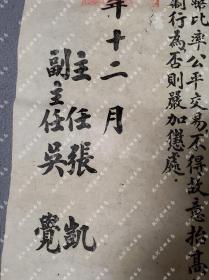 㨿比率公平交易不得故意抬高
制行為否則嚴加懲處．
年十二月
主任張凱
副主任吳覺